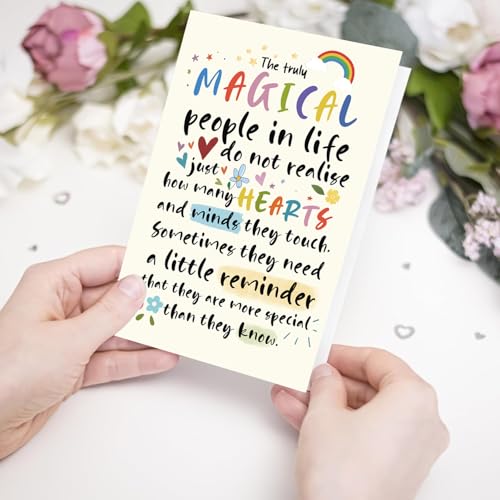 The truly
MAGICAL
people in life
do not realise
just
how many HEARTS
and minds they touch.
Sometimes they need
a little reminder
that they are more special
than they know.